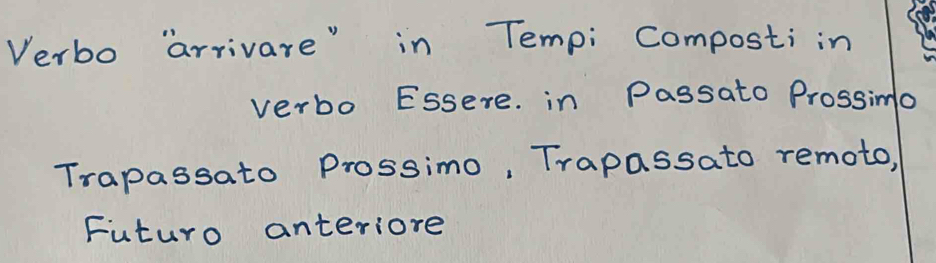 Verbo "arrivare" in Tempi Composti in
verbo Essere. in Passato Prossimo
Trapassato Prossimo, Trapassato remoto,
Futuro anteriore